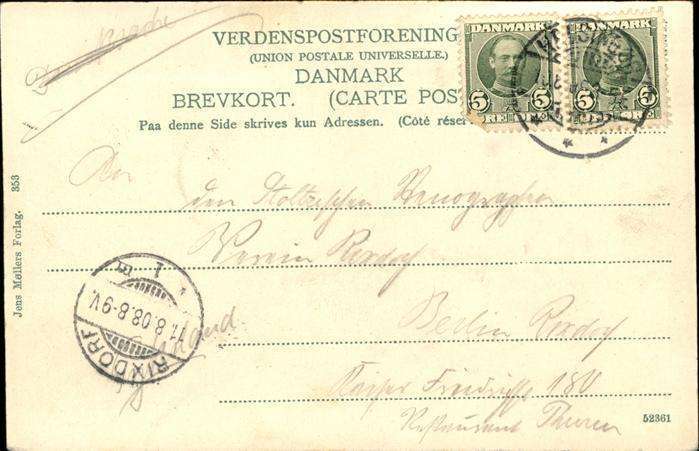 VERDENSPOSTFORENING
(UNION POSTALE UNIVERSELLE.)
DANMARK
BREVKORT. (CARTE POS
Paa denne Side skrives kun Adressen. (Côté réser
DANMARK
5 5
ØRE
DANMARK
5 5
ØRE
An
den Stolzeschen Stenographen
Verein Rixdorf
Berlin Rixdorf
Kaiser Friedrichstr 180
Restaurant
RIXDORF
11.8.08.8-9V.
1
Jens Møllers Forlag. 353
52361